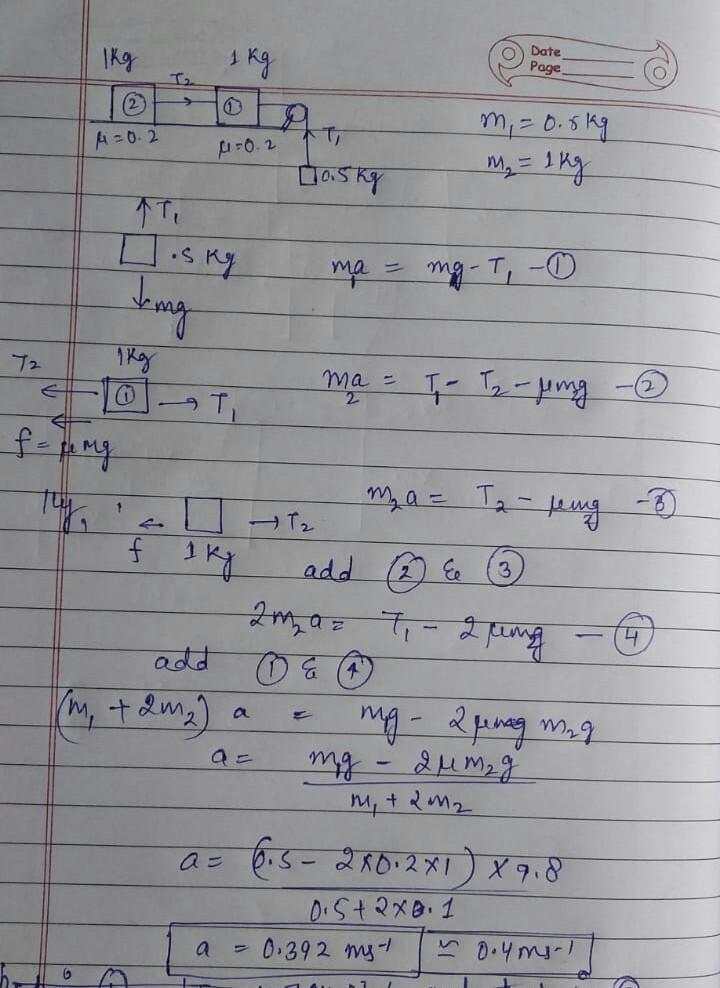 Date
Page
1Kg 1 Kg
T2
② ①
μ=0.2 μ=0.2 T1
0.5 Kg
m1 = 0.5 Kg
m2 = 1 Kg
↑T1
.5 Kg
↓mg
m1a = mg - T1 - ①
T2 1Kg
① → T1
f = μmg
m2a = T1 - T2 - μm2g - ②
lly, ← → T2
f 1 Kg
m2a = T2 - μm2g - ③
add ② & ③
2m2a = T1 - 2μm2g - ④
add ① & ④
(m1 + 2m2) a = m1g - 2μ m2g
a = m1g - 2μm2g
m1 + 2m2
a = (0.5 - 2×0.2×1) × 9.8
0.5 + 2×0.1
a = 0.392 ms-1 ≃ 0.4ms-1